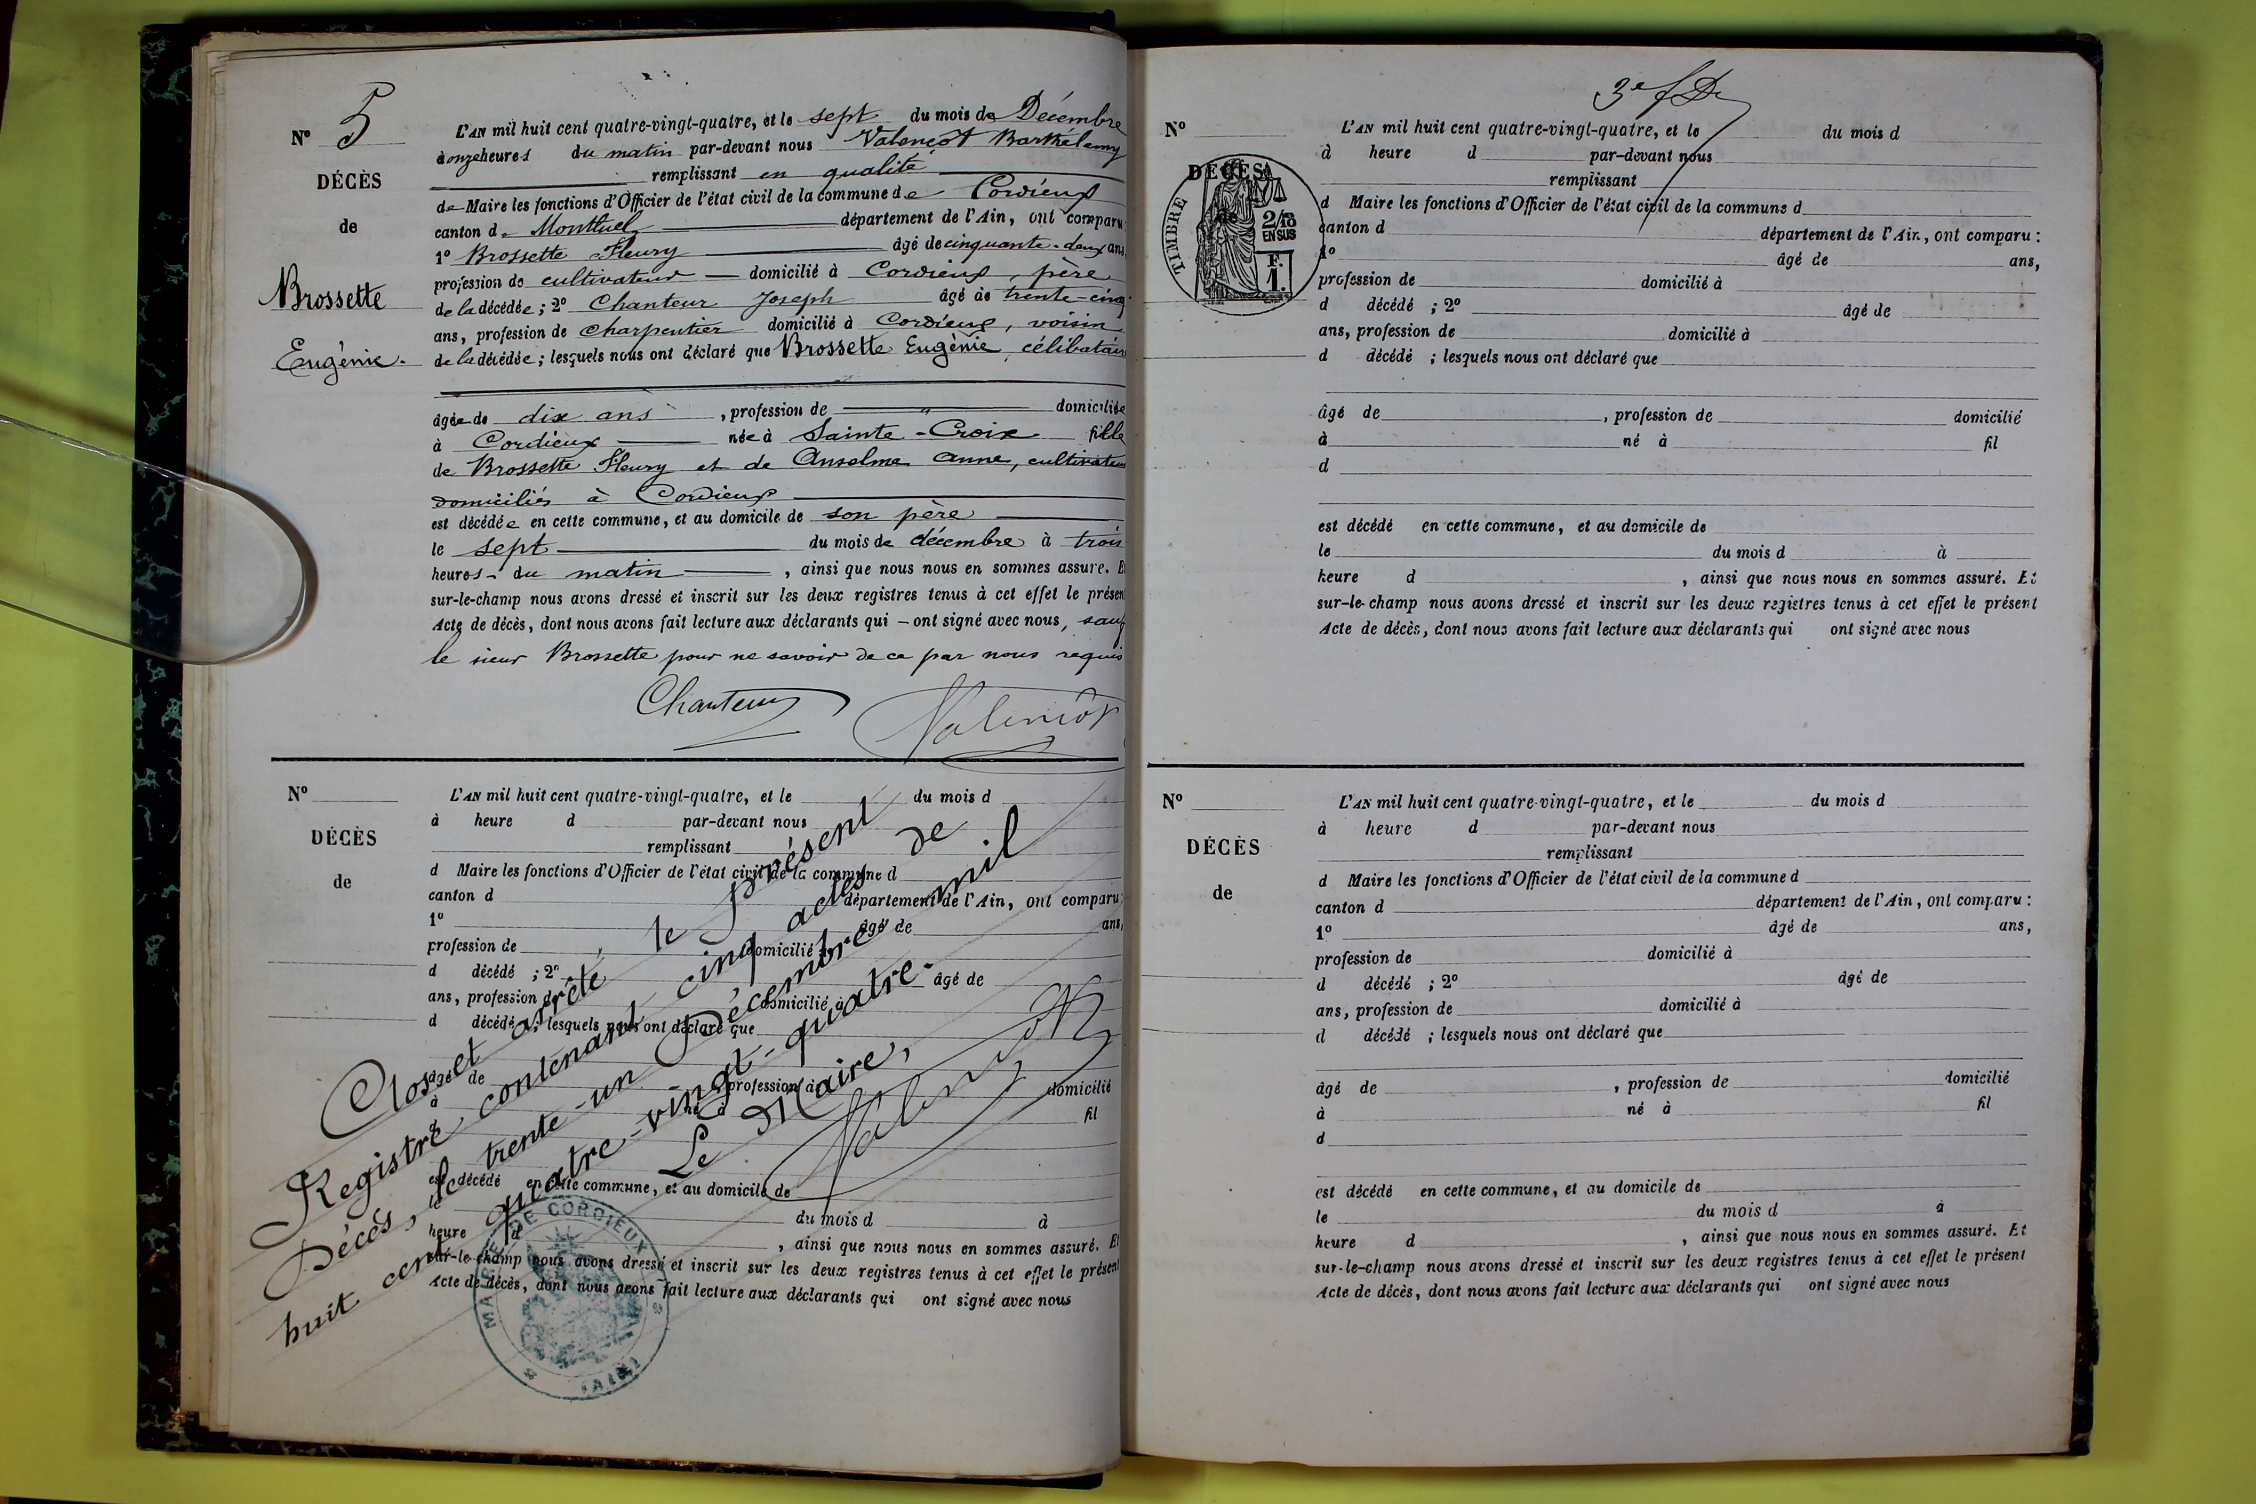 N° 5
DÉCÈS
de
Brossette
Eugénie.
L'AN mil huit cent quatre-vingt-quatre, et le sept du mois de Décembre
à onze heures du matin par-devant nous Valençot Barthélemy
remplissant en qualité
de Maire les fonctions d'Officier de l'état civil de la commune de Cordieux
canton de Montluel département de l'Ain, ont comparu
1° Brossette Fleury âgé de cinquante-deux ans,
profession de cultivateur domicilié à Cordieux, père
de la décédée ; 2° Chanteur Joseph âgé de trente-cinq
ans, profession de charpentier domicilié à Cordieux, voisin
de la décédée ; lesquels nous ont déclaré que Brossette Eugènie, célibatair
âgée de dix ans, profession de " domiciliée
à Cordieux née à Sainte-Croix fille
de Brossette Fleury et de Anselme Anne, cultivateurs
domiciliés à Cordieux
est décédée en cette commune, et au domicile de son père
le sept du mois de décembre à trois
heures du matin, ainsi que nous nous en sommes assuré. Et
sur-le-champ nous avons dressé et inscrit sur les deux registres tenus à cet effet le présent
Acte de décès, dont nous avons fait lecture aux déclarants qui — ont signé avec nous, sauf
le sieur Brossette pour ne savoir de ce par nous requis
Chanteur Valençot
N°
DÉCÈS
de
L'AN mil huit cent quatre-vingt-quatre, et le du mois d
à heure d par-devant nous
remplissant
d Maire les fonctions d'Officier de l'état civil de la commune d
canton d département de l'Ain, ont comparu :
1° âgé de ans,
profession de domicilié à
d décédé ; 2° âgé de
ans, profession de domicilié à
d décédé ; lesquels nous ont déclaré que
âgé de , profession de domicilié
à né à fil
d
est décédé en cette commune, et au domicile de
le du mois d à
heure d , ainsi que nous nous en sommes assuré. Et
sur-le-champ nous avons dressé et inscrit sur les deux registres tenus à cet effet le présent
Acte de décès, dont nous avons fait lecture aux déclarants qui ont signé avec nous
Clos et arrêté le présent
Registre, contenant cinq actes de
Décès, le trente-un Décembre mil
huit cent quatre-vingt-quatre.
Le Maire,
Valençot
MAIRIE DE CORDIEUX
(AIN)
3e f De
N°
DÉCÈS
de
TIMBRE
2/10
EN SUS
F.
1.
L'AN mil huit cent quatre-vingt-quatre, et le du mois d
à heure d par-devant nous
remplissant
d Maire les fonctions d'Officier de l'état civil de la commune d
canton d département de l'Ain, ont comparu :
1° âgé de ans,
profession de domicilié à
d décédé ; 2° âgé de
ans, profession de domicilié à
d décédé ; lesquels nous ont déclaré que
âgé de , profession de domicilié
à né à fil
d
est décédé en cette commune, et au domicile de
le du mois d à
heure d , ainsi que nous nous en sommes assuré. Et
sur-le-champ nous avons dressé et inscrit sur les deux registres tenus à cet effet le présent
Acte de décès, dont nous avons fait lecture aux déclarants qui ont signé avec nous
N°
DÉCÈS
de
L'AN mil huit cent quatre-vingt-quatre, et le du mois d
à heure d par-devant nous
remplissant
d Maire les fonctions d'Officier de l'état civil de la commune d
canton d département de l'Ain, ont comparu :
1° âgé de ans,
profession de domicilié à
d décédé ; 2° âgé de
ans, profession de domicilié à
d décédé ; lesquels nous ont déclaré que
âgé de , profession de domicilié
à né à fil
d
est décédé en cette commune, et au domicile de
le du mois d à
heure d , ainsi que nous nous en sommes assuré. Et
sur-le-champ nous avons dressé et inscrit sur les deux registres tenus à cet effet le présent
Acte de décès, dont nous avons fait lecture aux déclarants qui ont signé avec nous